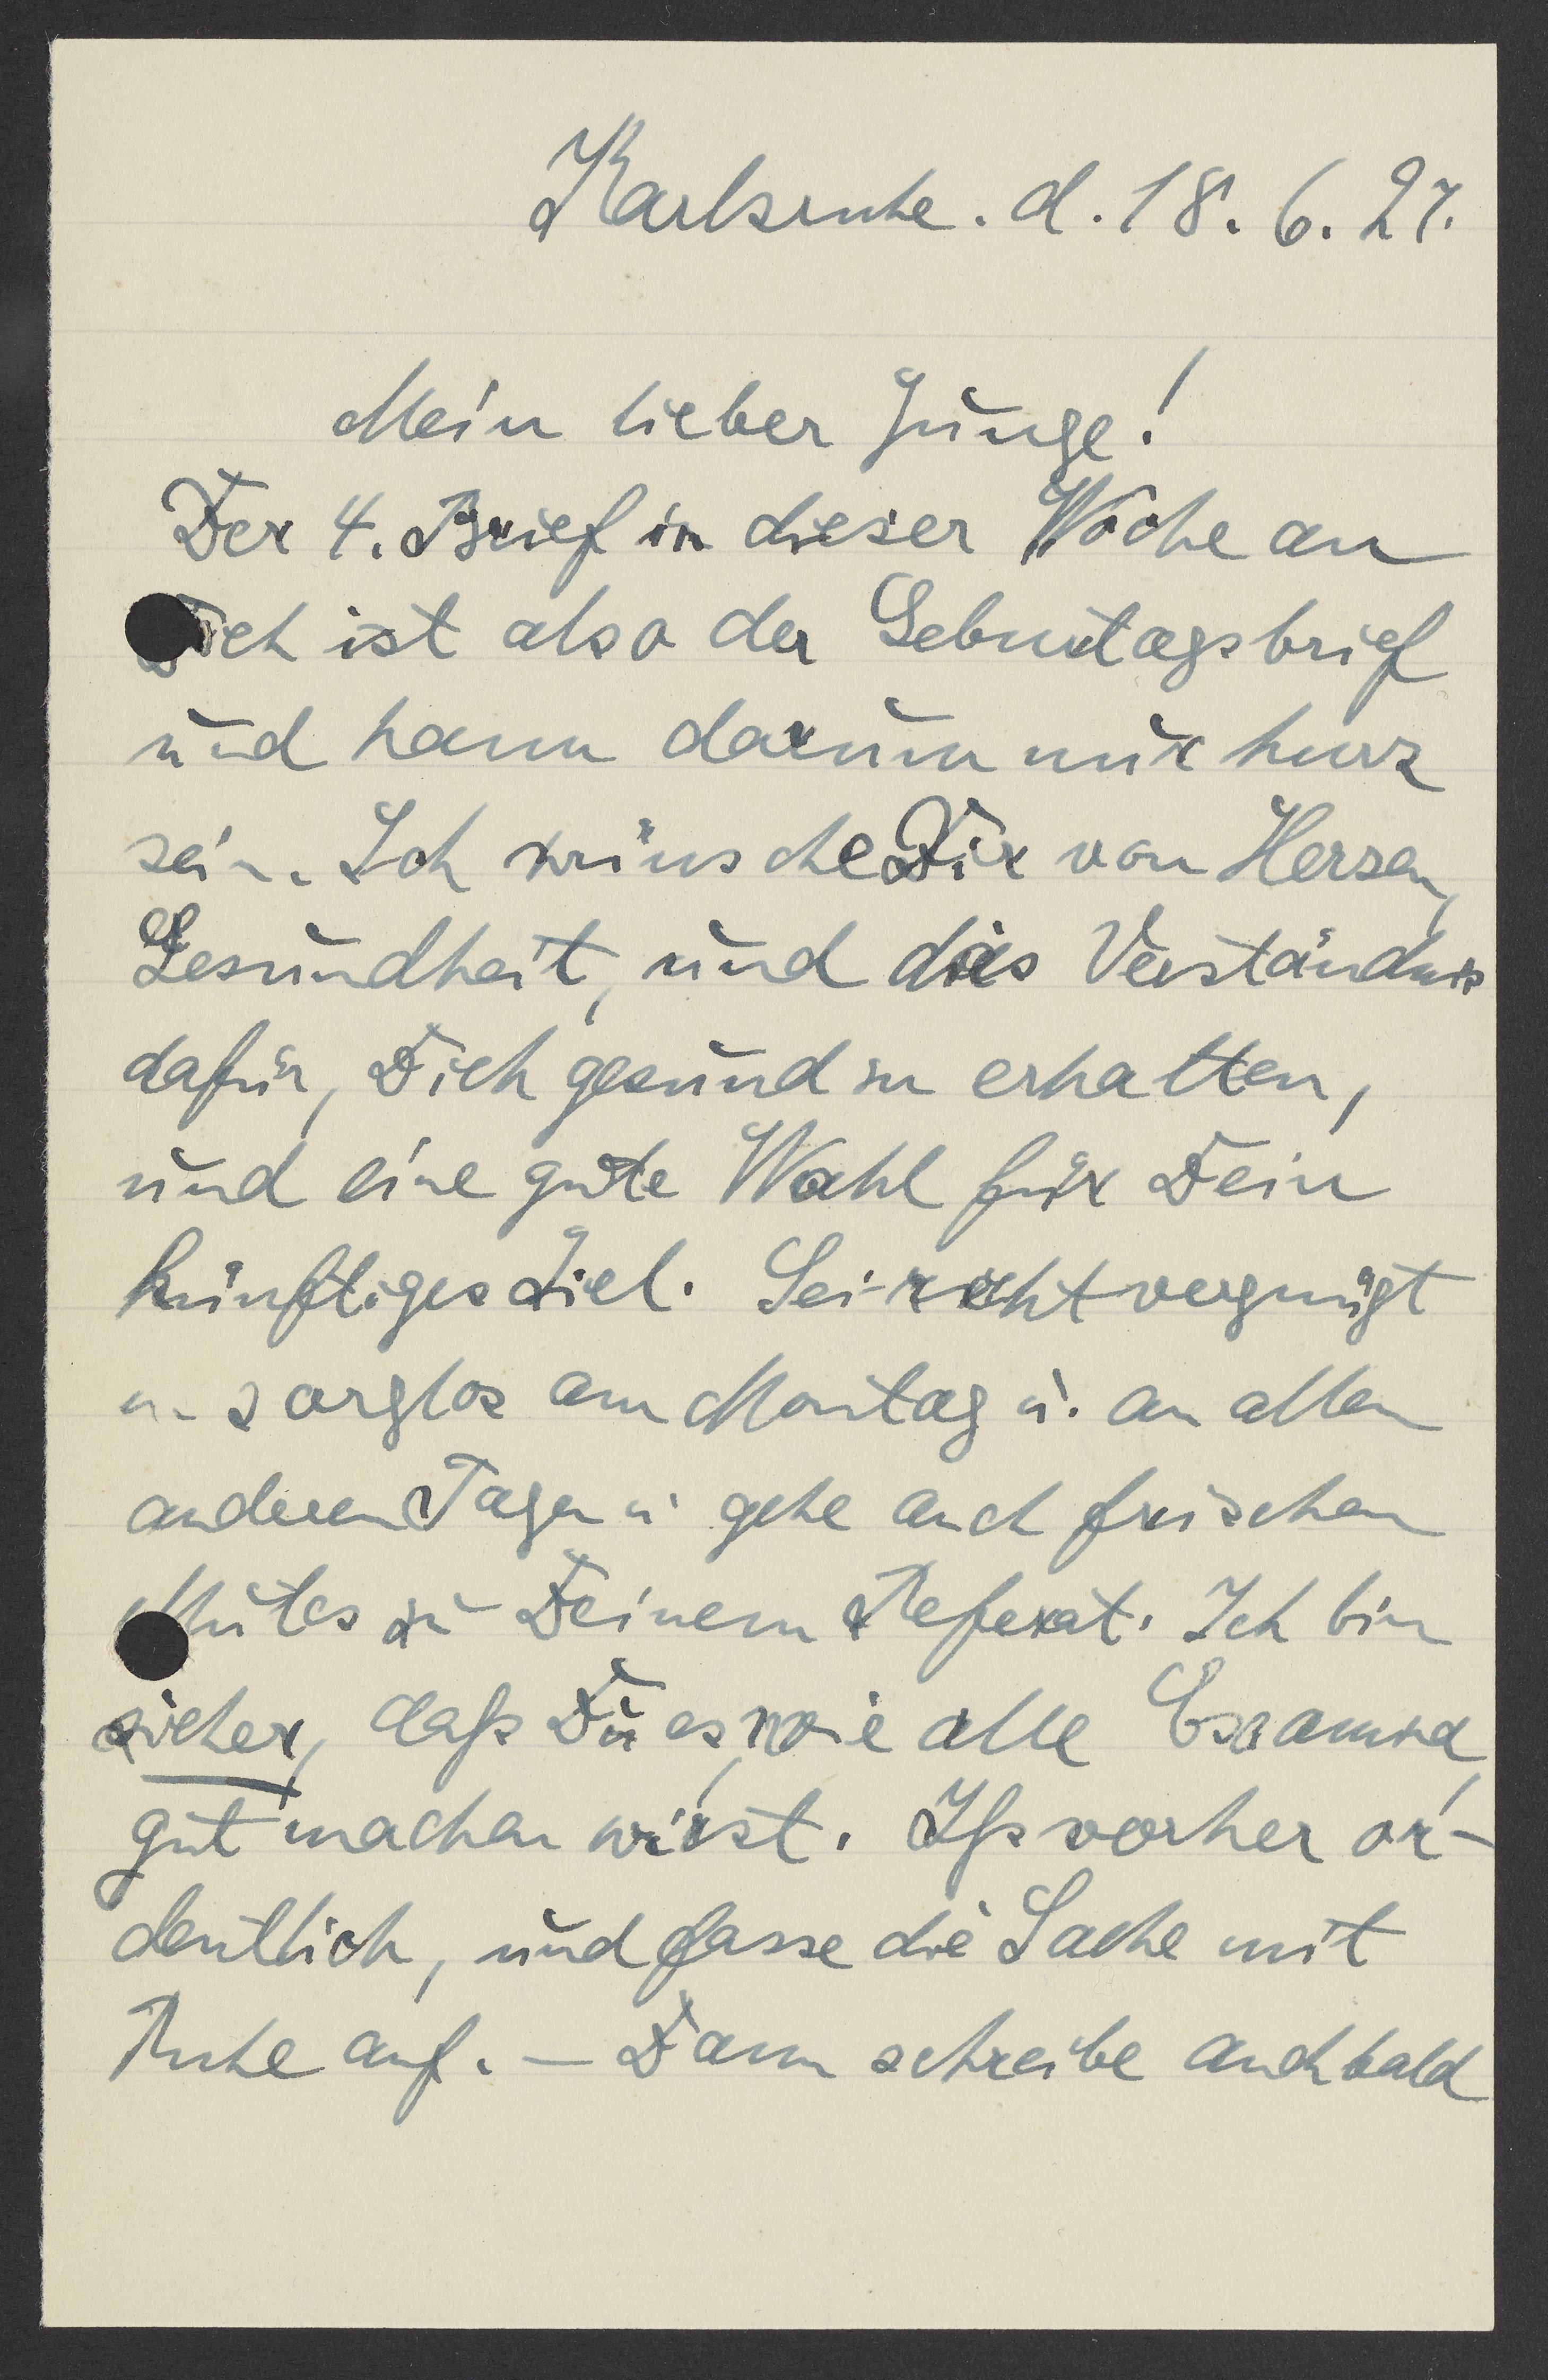 Karlsruhe. d. 18. 6. 27.
Mein lieber Junge!
Der 4. Brief in dieser Woche an
Dich ist also der Geburtstagsbrief
und kann darum nur kurz
sein. Ich wünsche Dir von Herzen,
Gesundheit, und das Verständnis
dafür, Dich gesund zu erhalten,
und eine gute Wahl für Dein
künftiges Ziel. Sei recht vergnügt
u. sorglos am Montag u. an allen
anderen Tagen u gehe auch frischen
Mutes zu Deinem Referat. Ich bin
sicher, daß Du es, wie alle Examina,
gut machen wirst. Iß vorher or-
dentlich, und fasse die Sache mit
Ruhe auf. — Dann schreibe auch bald